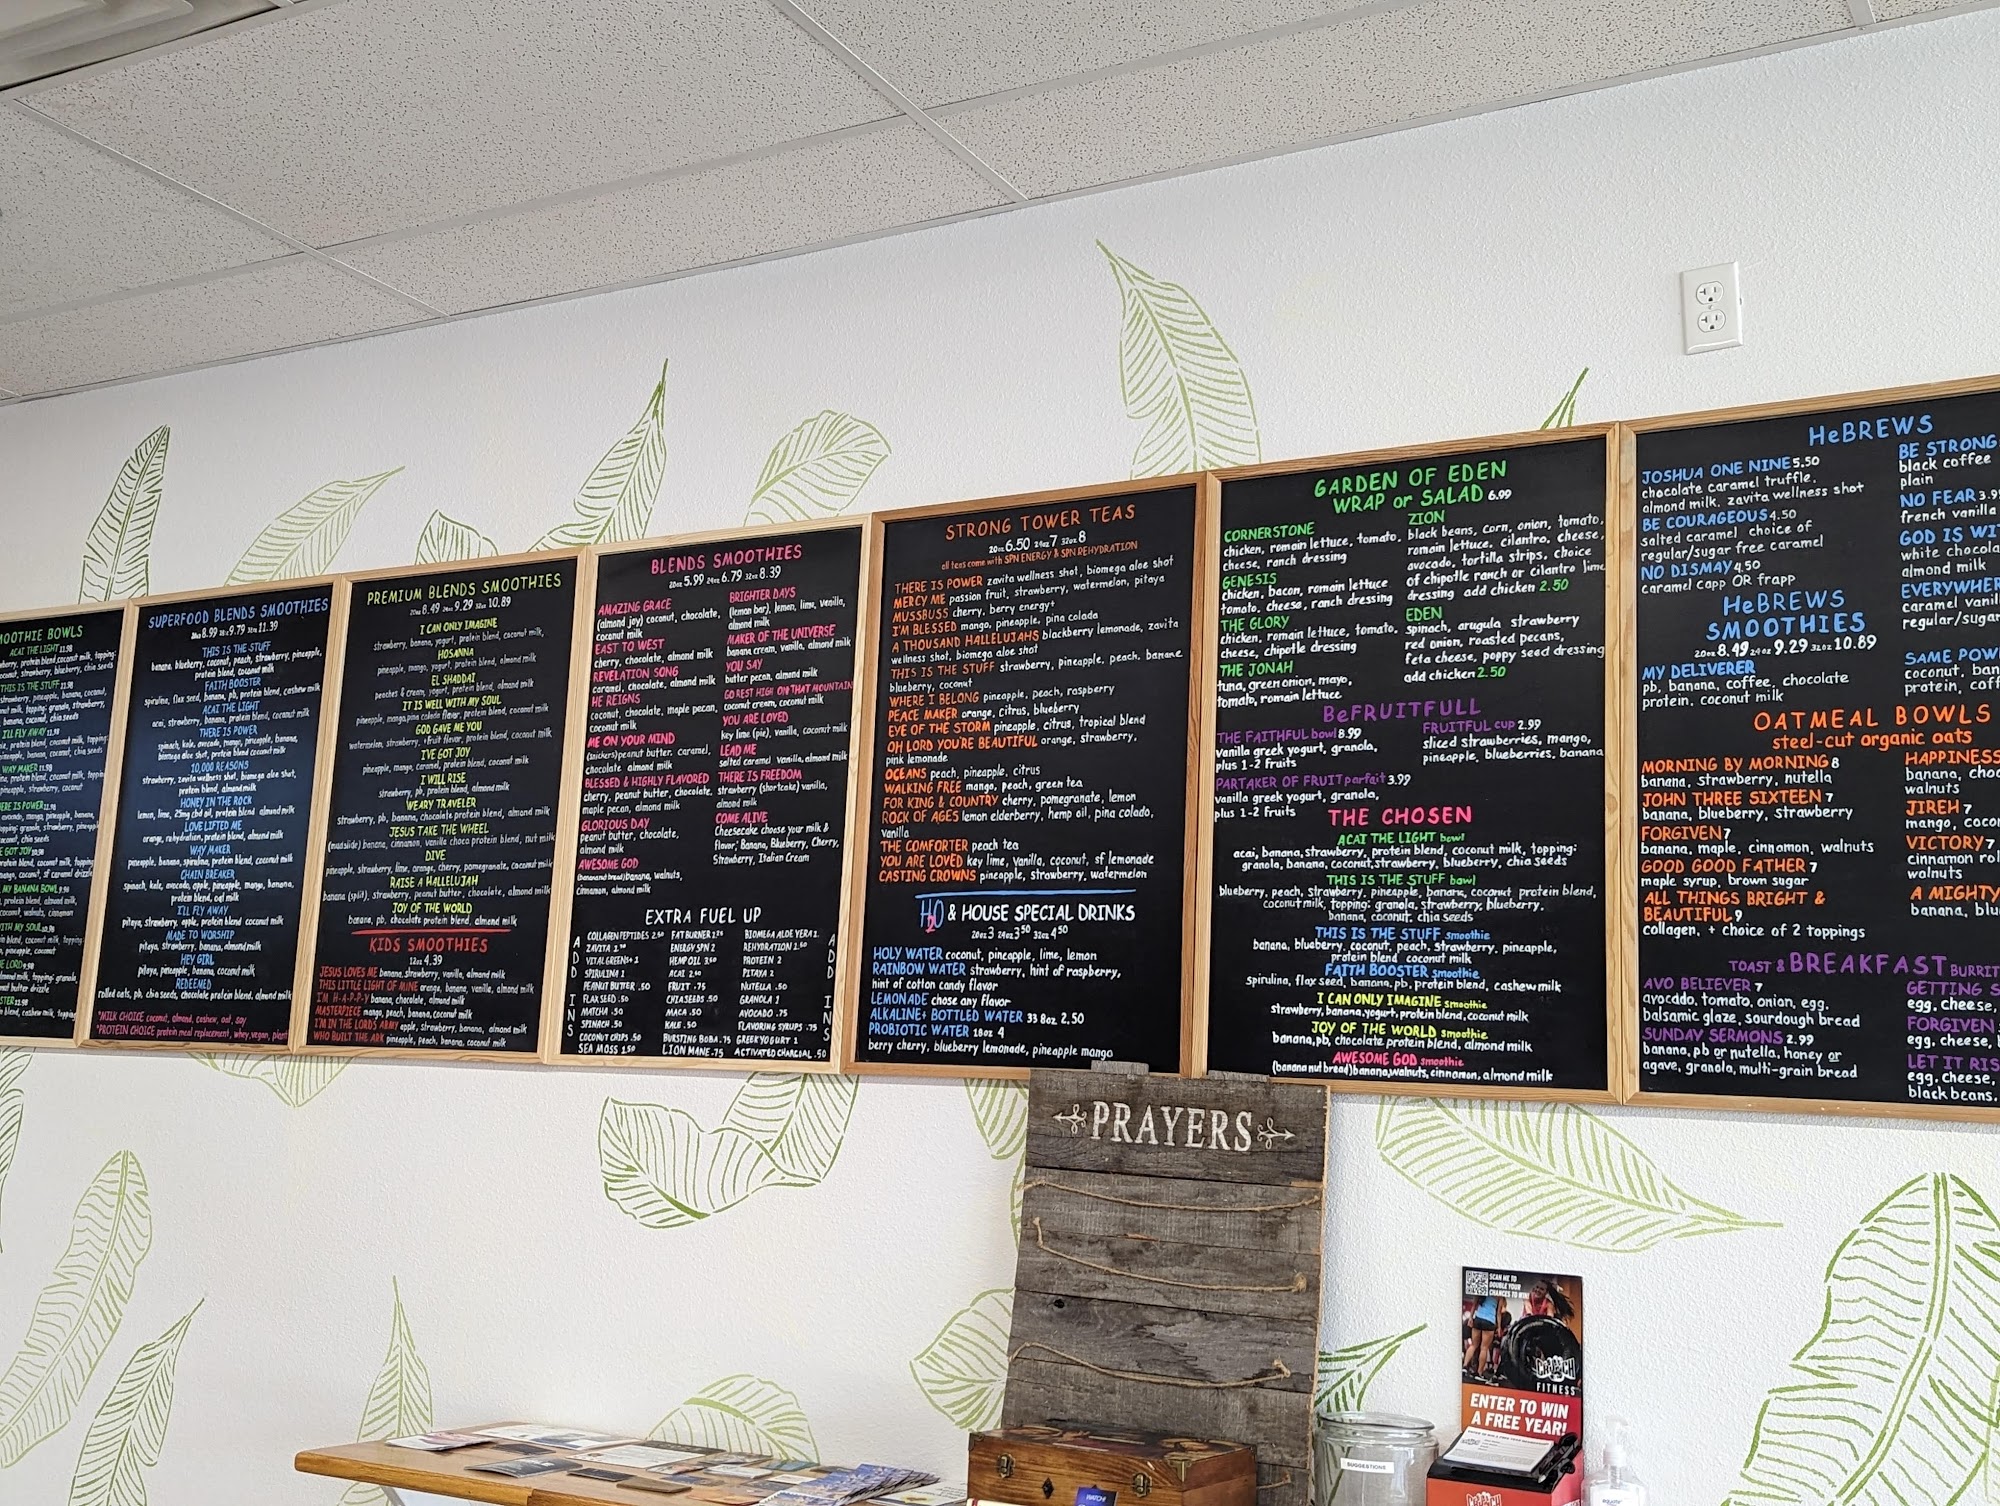 MOOTHIE BOWLS
ACAI THE LIGHT 11.98
THIS IS THE STUFF 11.98
ILL FLY AWAY
WAY MAKER 11.98
SUPERFOOD BLENDS SMOOTHIES
20oz 8.99 24oz 9.79 32oz 11.39
THIS IS THE STUFF
banana, blueberry, coconut, peach, strawberry, pineapple,
protein blend, coconut milk
FAITH BOOSTER
spirulina, flax seed, banana, pb, protein blend, cashew milk
ACAI THE LIGHT
acai, strawberry, banana, protein blend, coconut milk
THERE IS POWER
spinach, kale, avocado, mango, pineapple, banana,
biomega aloe shot, protein blend, coconut milk
10,000 REASONS
strawberry, zavita wellness shot, biomega aloe shot,
protein blend, almond milk
HONEY IN THE ROCK
lemon, lime, 25mg cbd oil, protein blend, almond milk
LOVE LIFTED ME
orange, rehydration, protein blend, almond milk
WAY MAKER
pineapple, banana, spirulina, protein blend, coconut milk
CHAIN BREAKER
spinach, kale, avocado, apple, pineapple, mango, banana,
protein blend, oat milk
I'LL FLY AWAY
pitaya, strawberry, apple, protein blend coconut milk
MADE TO WORSHIP
pitaya, strawberry, banana, almond milk
HEY GIRL
pitaya, pineapple, banana, coconut milk
REDEEMED
rolled oats, pb, chia seeds, chocolate protein blend, almond milk
*MILK CHOICE coconut, almond, cashew, oat, soy
*PROTEIN CHOICE protein meal replacement, whey, vegan, plant
PREMIUM BLENDS SMOOTHIES
20oz 8.49 24oz 9.29 32oz 10.89
I CAN ONLY IMAGINE
strawberry, banana, yogurt, protein blend, coconut milk,
HOSANNA
pineapple, mango, yogurt, protein blend, almond milk
EL SHADDAI
peaches & cream, yogurt, protein blend, almond milk
IT IS WELL WITH MY SOUL
pineapple, mango, pina colada flavor, protein blend, coconut milk
GOD GAVE ME YOU
watermelon, strawberry, +fruit flavor, protein blend, coconut milk
I'VE GOT JOY
pineapple, mango, caramel, protein blend, coconut milk
I WILL RISE
strawberry, pb, protein blend, almond milk
WEARY TRAVELER
strawberry, pb, banana, chocolate protein blend, almond milk
JESUS TAKE THE WHEEL
(mudslide) banana, cinnamon, vanilla choco protein blend, nut milk
DIVE
pineapple, strawberry, lime, orange, cherry, pomegranate, coconut milk
RAISE A HALLELUJAH
banana (split), strawberry, peanut butter, chocolate, almond milk
JOY OF THE WORLD
banana, pb, chocolate protein blend, almond milk
KIDS SMOOTHIES
12oz 4.39
JESUS LOVES ME banana, strawberry, vanilla, almond milk
THIS LITTLE LIGHT OF MINE orange, banana, vanilla, almond milk
I'M H-A-P-P-Y banana, chocolate, almond milk
MASTERPIECE mango, peach, banana, coconut milk
I'M IN THE LORDS ARMY apple, strawberry, banana, almond milk
WHO BUILT THE ARK pineapple, peach, banana, coconut milk
BLENDS SMOOTHIES
20oz 5.99 24oz 6.79 32oz 8.39
AMAZING GRACE
(almond joy) coconut, chocolate,
coconut milk
EAST TO WEST
cherry, chocolate, almond milk
REVELATION SONG
caramel, chocolate, almond milk
HE REIGNS
coconut, chocolate, maple pecan,
coconut milk
ME ON YOUR MIND
(snickers) peanut butter, caramel,
chocolate almond milk
BLESSED & HIGHLY FLAVORED
cherry, peanut butter, chocolate,
maple pecan, almond milk
GLORIOUS DAY
peanut butter, chocolate,
almond milk
AWESOME GOD
(banana nut bread) banana, walnuts,
cinnamon, almond milk
BRIGHTER DAYS
(lemon bar), lemon, lime, vanilla,
almond milk
MAKER OF THE UNIVERSE
banana cream, vanilla, almond milk
YOU SAY
butter pecan, almond milk
GO REST HIGH ON THAT MOUNTAIN
coconut cream, coconut milk
YOU ARE LOVED
key lime (pie), vanilla, coconut milk
LEAD ME
salted caramel, vanilla, almond milk
THERE IS FREEDOM
strawberry (shortcake) vanilla,
almond milk
COME ALIVE
Cheesecake choose your milk &
flavor; Banana, Blueberry, Cherry,
Strawberry, Italian Cream
EXTRA FUEL UP
ADD INS
COLLAGEN PEPTIDES 2.50
ZAVITA
VITAL GREENS+ 1
SPIRULINA 1
PEANUT BUTTER .50
FLAX SEED .50
MATCHA .50
SPINACH .50
COCONUT CHIPS .50
SEA MOSS 1.50
FAT BURNER
ENERGY SPN 2
HEMP OIL 3.50
ACAI 2.50
FRUIT .75
CHIA SEEDS .50
MACA .50
KALE .50
BURSTING BOBA .75
LION MANE .75
BIOMEGA ALOE VERA 2.
REHYDRATION 2.50
PROTEIN 2
PITAYA 2
NUTELLA .50
GRANOLA 1
AVOCADO .75
FLAVORING SYRUPS .75
GREEK YOGURT 1
ACTIVATED CHARCOAL .50
ADD INS
STRONG TOWER TEAS
20oz 6.50 24oz 7 32oz 8
all teas come with SPN ENERGY & SPN REHYDRATION
THERE IS POWER zavita wellness shot, biomega aloe shot
MERCY ME passion fruit, strawberry, watermelon, pitaya
MUSSBUSS cherry, berry energy+
I'M BLESSED mango, pineapple, pina colada
A THOUSAND HALLELUJAHS blackberry lemonade, zavita
wellness shot, biomega aloe shot
THIS IS THE STUFF strawberry, pineapple, peach, banana
blueberry, coconut
WHERE I BELONG pineapple, peach, raspberry
PEACE MAKER orange, citrus, blueberry
EYE OF THE STORM pineapple, citrus, tropical blend
OH LORD YOU'RE BEAUTIFUL orange, strawberry,
pink lemonade
OCEANS peach, pineapple, citrus
WALKING FREE mango, peach, green tea
FOR KING & COUNTRY cherry, pomegranate, lemon
ROCK OF AGES lemon elderberry, hemp oil, pina colado,
vanilla
THE COMFORTER peach tea
YOU ARE LOVED key lime, vanilla, coconut, sf lemonade
CASTING CROWNS pineapple, strawberry, watermelon
H2O & HOUSE SPECIAL DRINKS
20oz 3 24oz 3.50 32oz 4.50
HOLY WATER coconut, pineapple, lime, lemon
RAINBOW WATER strawberry, hint of raspberry,
hint of cotton candy flavor
LEMONADE chose any flavor
ALKALINE+ BOTTLED WATER 33 8oz 2.50
PROBIOTIC WATER 18oz 4
berry cherry, blueberry lemonade, pineapple mango
GARDEN OF EDEN
WRAP or SALAD 6.99
CORNERSTONE
chicken, romain lettuce, tomato,
cheese, ranch dressing
GENESIS
chicken, bacon, romain lettuce
tomato, cheese, ranch dressing
THE GLORY
chicken, romain lettuce, tomato,
cheese, chipotle dressing
THE JONAH
tuna, green onion, mayo,
tomato, romain lettuce
ZION
black beans, corn, onion, tomato,
romain lettuce, cilantro, cheese,
avocado, tortilla strips, choice
of chipotle ranch or cilantro lime
dressing add chicken 2.50
EDEN
spinach, arugula strawberry
red onion, roasted pecans,
feta cheese, poppy seed dressing
add chicken 2.50
BeFRUITFULL
THE FAITHFUL bowl 8.99
vanilla greek yogurt, granola,
plus 1-2 fruits
PARTAKER OF FRUIT parfait 3.99
vanilla greek yogurt, granola,
plus 1-2 fruits
FRUITFUL cup 2.99
sliced strawberries, mango,
pineapple, blueberries, banana
THE CHOSEN
ACAI THE LIGHT bowl
acai, banana, strawberry, protein blend, coconut milk, topping:
granola, banana, coconut, strawberry, blueberry, chia seeds
THIS IS THE STUFF bowl
blueberry, peach, strawberry, pineapple, banana, coconut protein blend,
coconut milk, topping: granola, strawberry, blueberry,
banana, coconut, chia seeds
THIS IS THE STUFF smoothie
banana, blueberry, coconut, peach, strawberry, pineapple,
protein blend coconut milk
FAITH BOOSTER smoothie
spirulina, flax seed, banana, pb, protein blend, cashew milk
I CAN ONLY IMAGINE smoothie
strawberry, banana, yogurt, protein blend, coconut milk
JOY OF THE WORLD smoothie
banana, pb, chocolate protein blend, almond milk
AWESOME GOD smoothie
(banana nut bread) banana, walnuts, cinnamon, almond milk
HeBREWS
JOSHUA ONE NINE 5.50
chocolate caramel truffle,
almond milk, zavita wellness shot
BE COURAGEOUS 4.50
salted caramel choice of
regular/sugar free caramel
NO DISMAY 4.50
caramel capp OR frapp
BE STRONG
black coffee
plain
NO FEAR 3.9
french vanilla
GOD IS WIT
white chocola
almond milk
EVERYWHER
caramel vanil
regular/sugar
HeBREWS
SMOOTHIES
20oz 8.49 24oz 9.29 32oz 10.89
MY DELIVERER
pb, banana, coffee, chocolate
protein, coconut milk
SAME POW
coconut, ban
protein, coff
OATMEAL BOWLS
steel-cut organic oats
MORNING BY MORNING 8
banana, strawberry, nutella
JOHN THREE SIXTEEN 7
banana, blueberry, strawberry
FORGIVEN 7
banana, maple, cinnamon, walnuts
GOOD GOOD FATHER 7
maple syrup, brown sugar
ALL THINGS BRIGHT &
BEAUTIFUL 9
collagen, + choice of 2 toppings
HAPPINESS
banana, choc
walnuts
JIREH 7
mango, cocon
VICTORY 7
cinnamon rol
walnuts
A MIGHTY
banana, blue
TOAST & BREAKFAST BURRIT
AVO BELIEVER 7
avocado, tomato, onion, egg,
balsamic glaze, sourdough bread
SUNDAY SERMONS 2.99
banana, pb or nutella, honey or
agave, granola, multi-grain bread
GETTING S
egg, cheese,
FORGIVEN
egg, cheese,
LET IT RIS
egg, cheese,
black beans,
PRAYERS
SCAN ME TO
DOUBLE YOUR
CHANCES TO WIN!
CRUNCH
FITNESS
ENTER TO WIN
A FREE YEAR!
SUGGESTIONS
WATCH!
CRUNCH